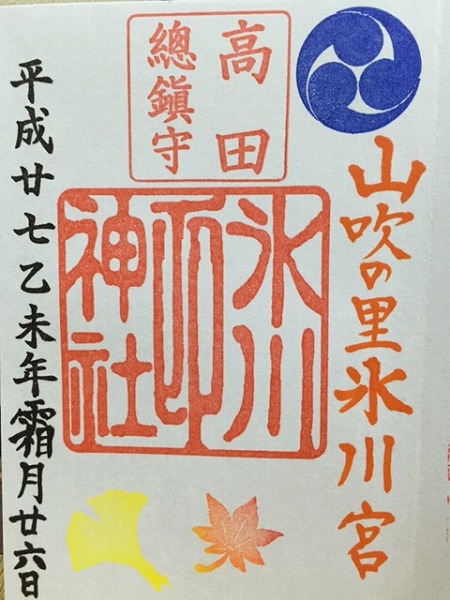 山吹の里氷川宮
高田
總鎮守
氷川
神社
平成廿七乙未年霜月廿六日